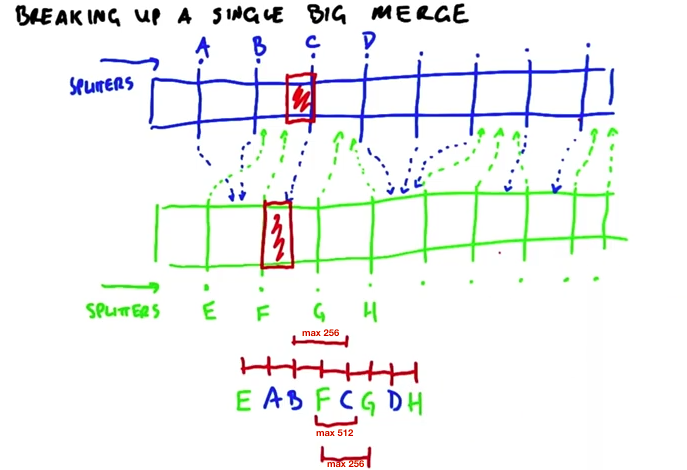 BREAKING UP A SINGLE BIG MERGE
A B C D
SPLITTERS
SPLITTERS
E F G H
max 256
E A B F C G D H
max 512
max 256